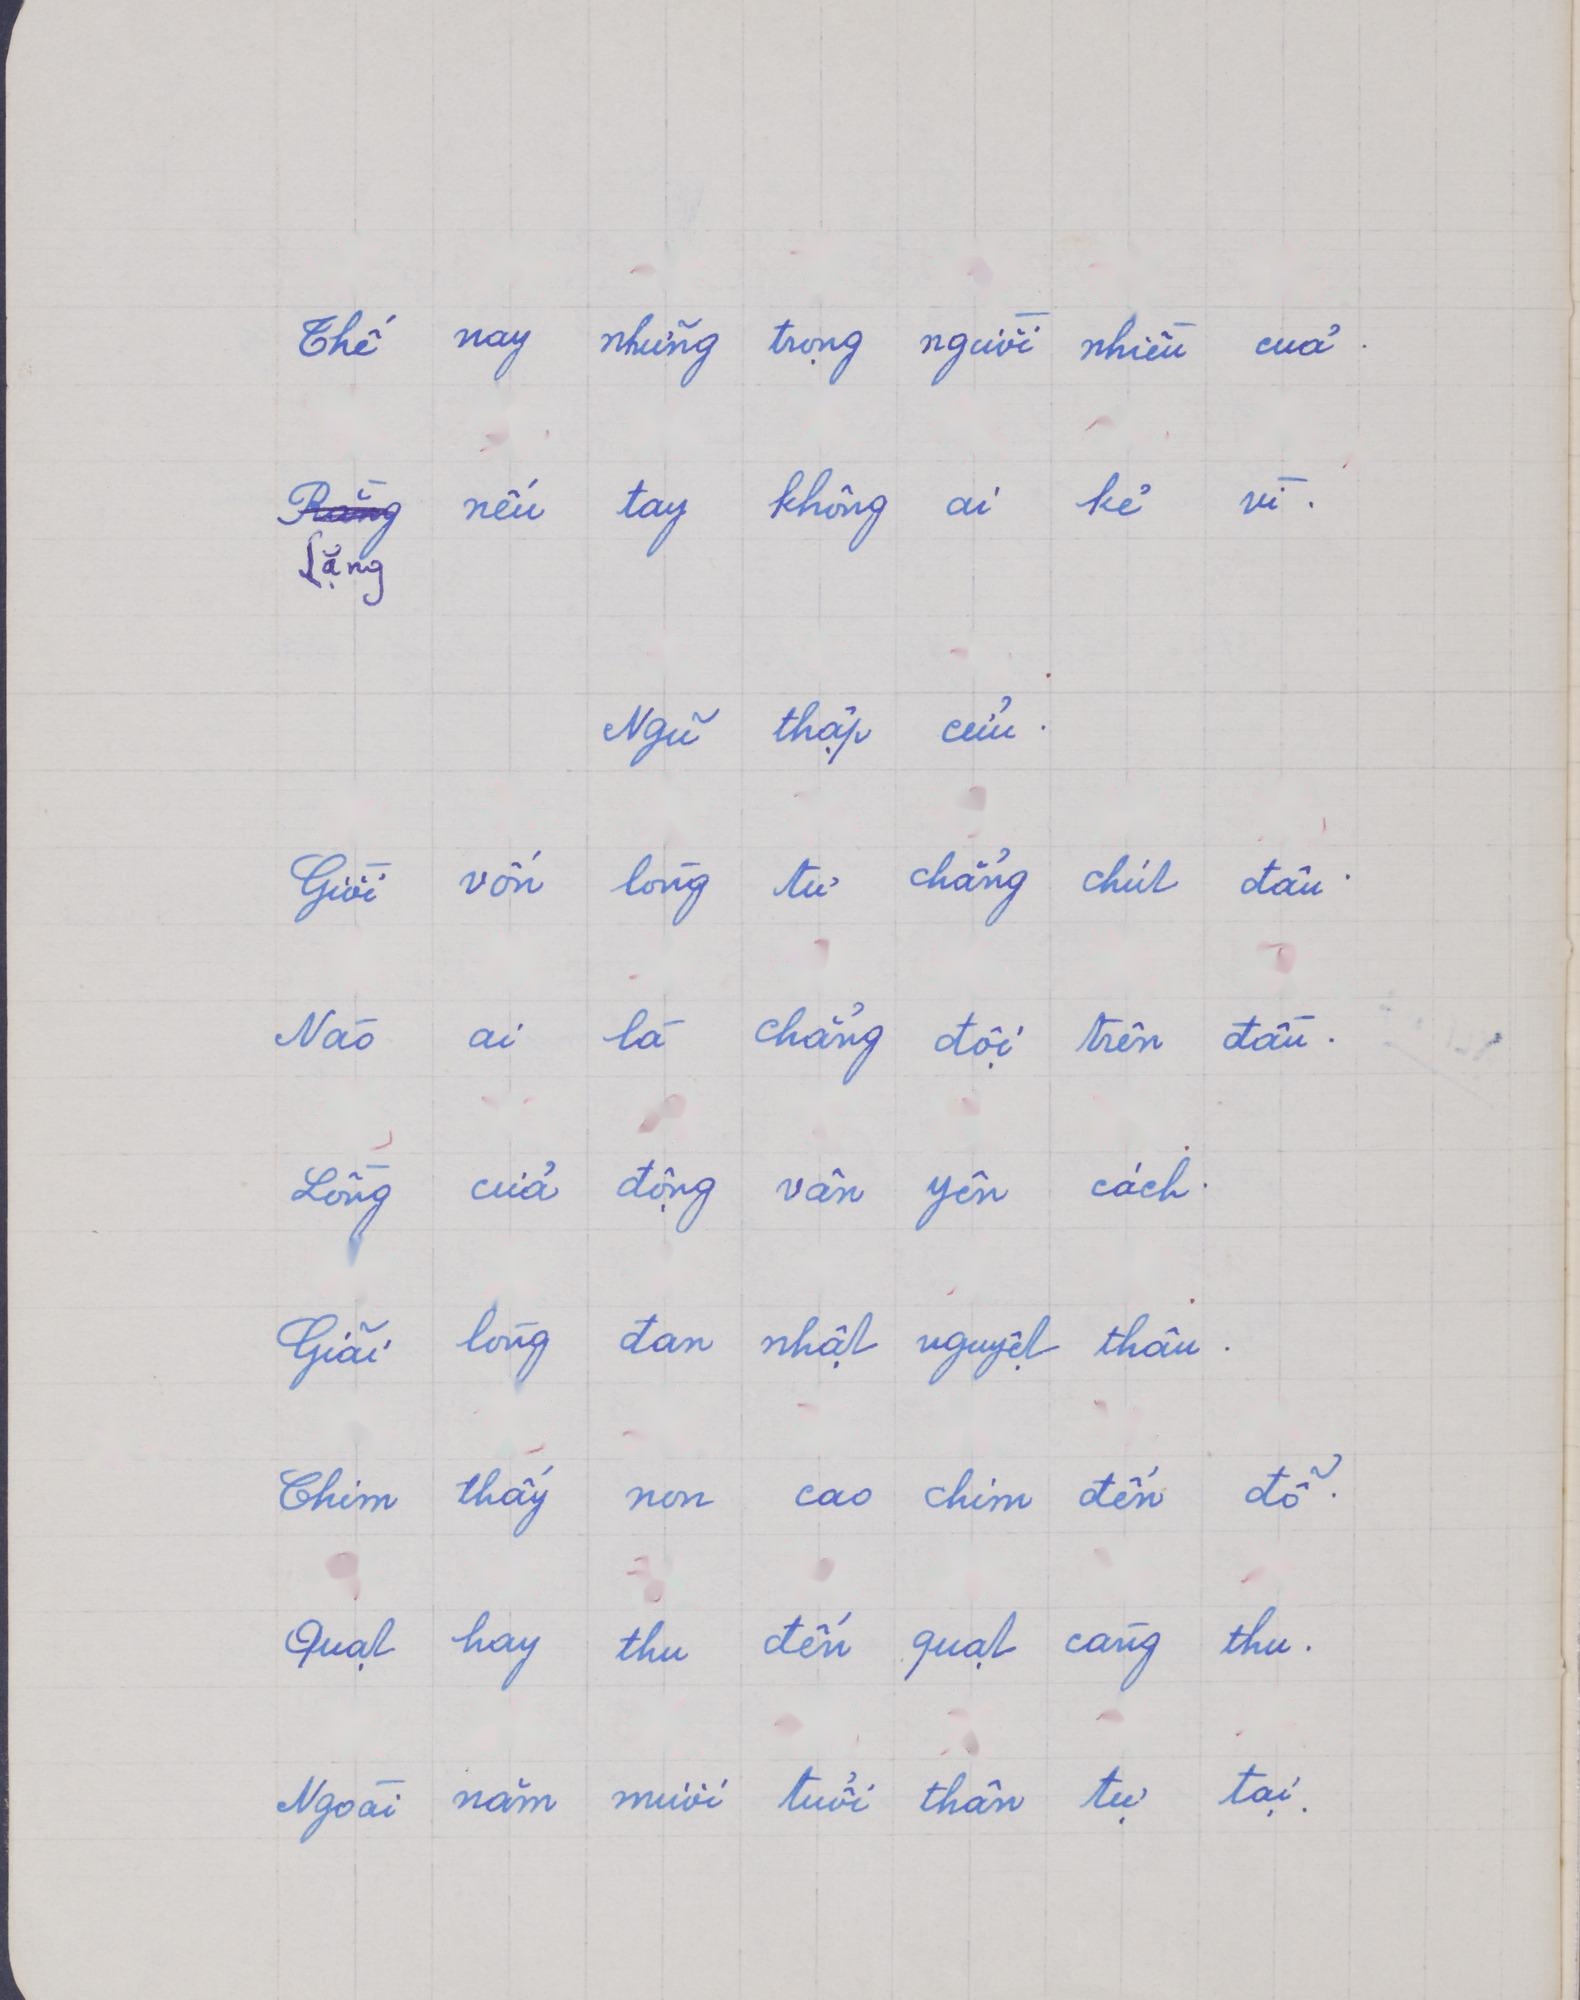 Thế nay những trọng người nhiều của.
Rằng nếu tay không ai kẻ vì.
Lặng
Ngũ thập cửu.
Giời vốn lòng tư chẳng chút đâu.
Nào ai là chẳng đội trên đầu.
Lồng cửa động vân yên cách.
Giãi lòng đan nhật nguyệt thâu.
Chim thấy non cao chim đến đỗ.
Quạt hay thu đến quạt càng thu.
Ngoài năm mươi tuổi thân tự tại.